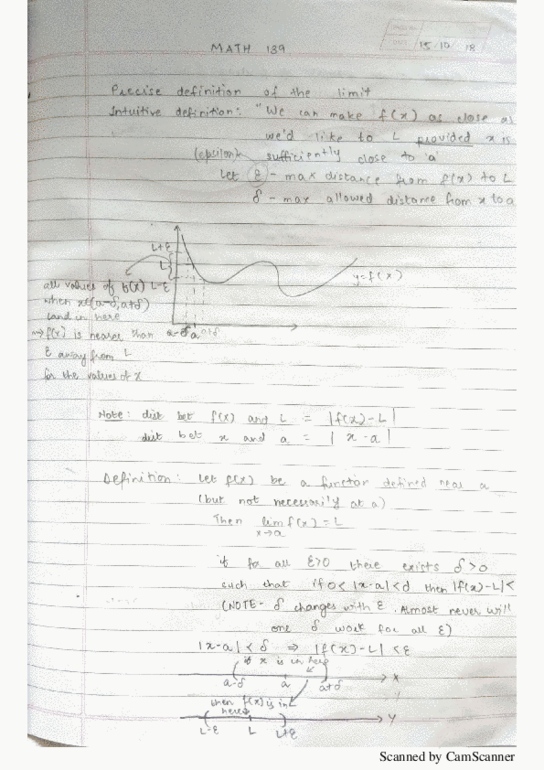 MATH 139
15 10 18
Precise definition of the limit
Intuitive definition: "We can make f(x) as close as
we'd like to L provided x is
sufficiently close to 'a'
(epsilon)
Let ε - max distance from f(x) to L
δ - max allowed distance from x to a
L+ε
L
L-ε
y=f(x)
all values of f(x)
when xε(a-δ,a+δ)
land in here
a-δ a a+δ
⇒ f(x) is nearer than
ε away from L
for the values of x
Note: dist bet f(x) and L = |f(x)-L|
dist bet x and a = | x-a |
Definition: Let f(x) be a function defined near a
(but not necessarily at a)
Then lim f(x) = L
x→a
if for all ε>0 there exists δ>0
such that if 0< |x-a|<d then |f(x)-L|<
(NOTE- δ changes with ε. Almost never will
one δ work for all ε)
|x-a| < δ ⇒ |f(x)-L| <ε
if x is in here
a-δ a a+δ X
when f(x) is in
here
L-ε L L+ε Y
Scanned by CamScanner